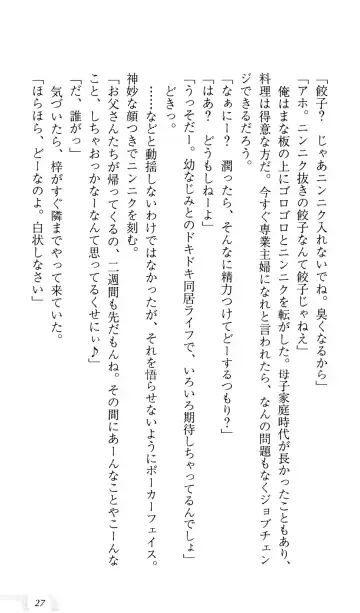 「餃子？　じゃあニンニク入れないでね。臭くなるから」
「アホ。ニンニク抜きの餃子なんて餃子じゃねえ」
俺はまな板の上にゴロゴロとニンニクを転がした。母子家庭時代が長かったこともあり、
料理は得意な方だ。今すぐ専業主婦になれと言われたら、なんの問題もなくジョブチェン
ジできるだろう。
「なぁにー？　潤ったら、そんなに精力つけてどーするつもり？」
「はあ？　どうもしねーよ」
「うっそだー。幼なじみとのドキドキ同居ライフで、いろいろ期待しちゃってるんでしょ」
どきっ。
……などと動揺しないわけではなかったが、それを悟らせないようにポーカーフェイス。
神妙な顔つきでニンニクを刻む。
「お父さんたちが帰ってくるの、二週間も先だもんね。その間にあーんなことやこーんな
こと、しちゃおっかなーなんて思ってるくせにぃ♪」
「だ、誰がっ」
気づいたら、梓がすぐ隣までやって来ていた。
「ほらほら、どーなのよ。白状しなさい」
27